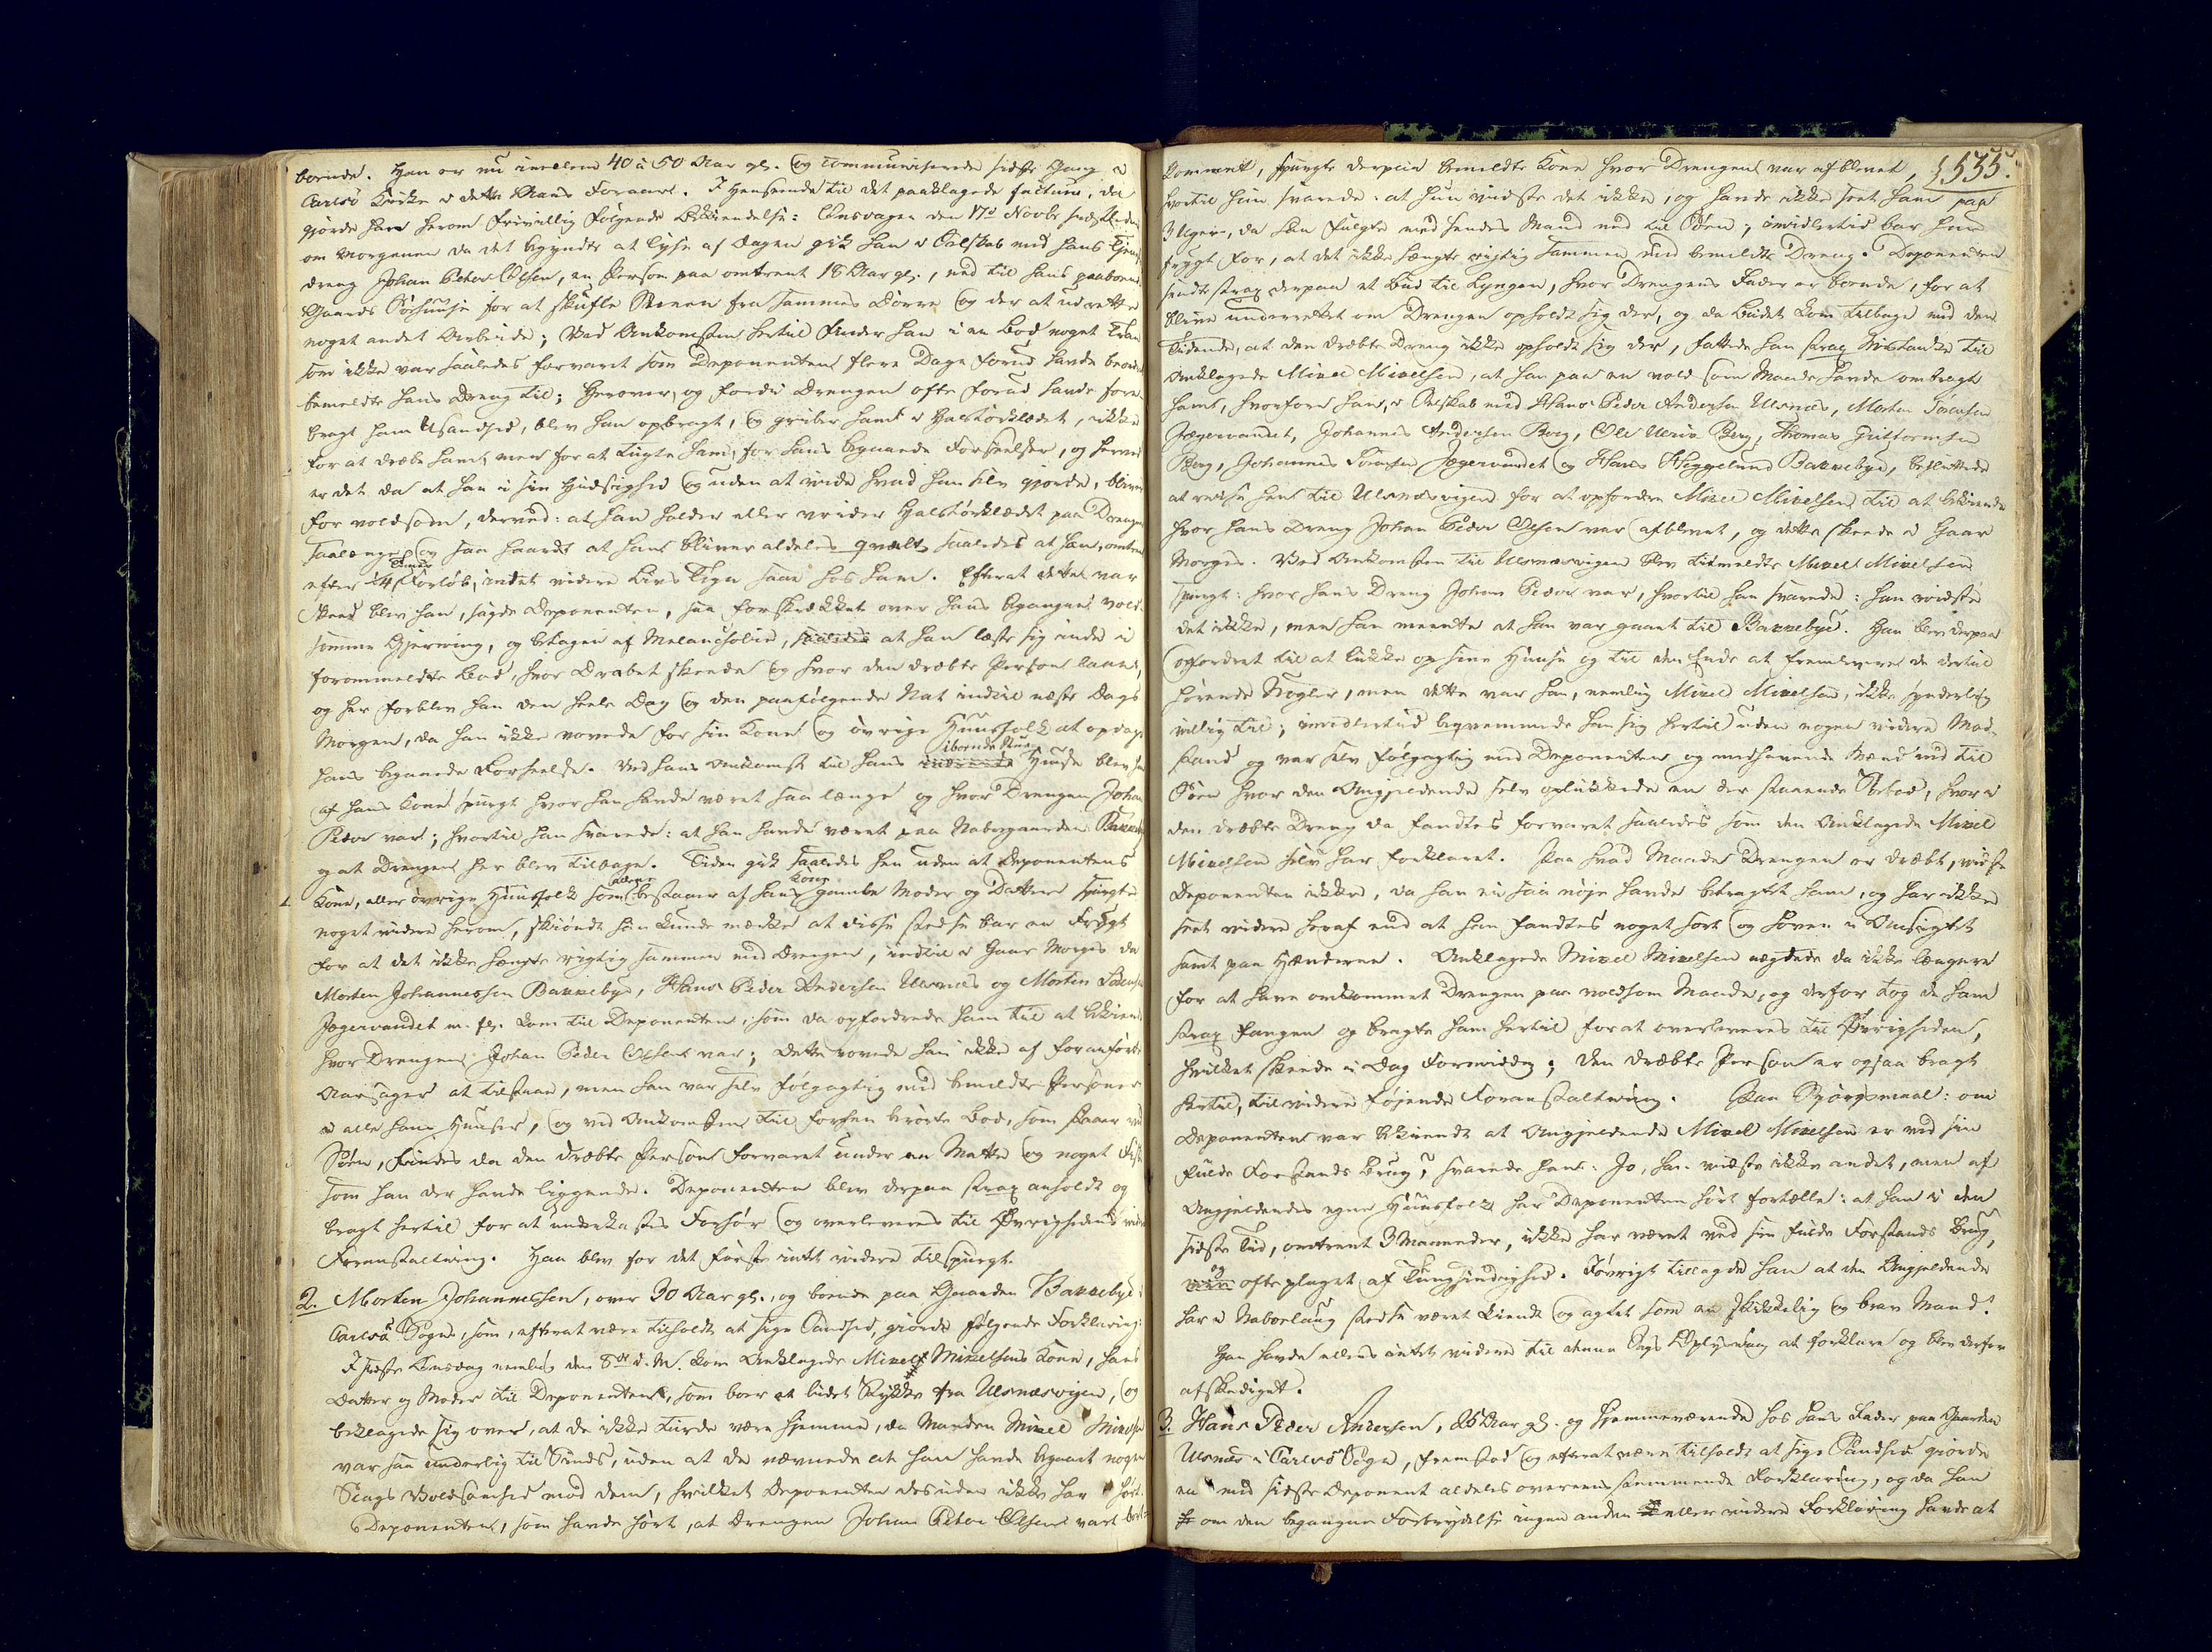 boende. Han er nu imellem 40 à 50 Aar gl. og communiserede sidste Gang i
Carlsø Kirke i dette Aars Foraar. I Henseende til det paaklagede factum, da
gjorde han herom frivillig følgende Bekiendelse: Onsdagen den 17de Novbr sidstleden
om Morgenen da det begyndte at lyse af Dagen gik han i Følskab med hans Tjeneste
dreng Johan Peter Olsen, en Person paa omtrent 18 Aar gl., ned til hans paaboende
Gaards Søehuuse for at skufle Sneen fra sammes Dørre og der at udrette
noget andet Arbeide; Ved Ankomsten hertil finder han i en Bod noget Tran
som ikke var saaledes forvaret som Deponenten flere Dage forud havde beordret
bemeldte hans Dreng til; Herover, og fordi Drengen ofte forud havde fore-
bragt ham Usandhed, blev han opbragt, og griber ham i Halstørklædet, ikke
for at dræbe ham, men for at tugte ham, for hans begaaede Forseelser, og herved
er det da at han i sin Hidsighed og uden at vide hvad han selv gjorde, bliver
for voldsom, derved: at han holder eller vrider Halstørklædet paa Drengen
saalænge og saa haardt at han bliver aldeles qvalt, saaledes at han, omtrent
efter 1/4 Times Forløb, intet videre Livs Tegn saae hos ham. Efterat dette var
skeed blev han, sagde Deponenten, saa forskrækket over hans begangne vold-
somme Gjerning, og betagen af Melancholie, saaledes at han læste sig inde i
forommeldte Bod, hvor Drabet skeede og hvor den dræbte Person laae,
og her forblev han den heele Dag og den paafølgende Nat indtil næste Dags
Morgen, da han ikke vovede for sin Kone og øvrige Huusfolk at opdage
hans begaaede Forseelse. Ved hans Ankomst til hans iboende Stue Huuse blev han
af hans Kone spurgt hvor han havde været saa længe og hvor Drengen Johan
Peder var; hvortil han svarede: at han havde været paa Nabogaarden Bakkebye
og at Drengen her blev tilbage. Tiden gik saaledes hen uden at Deponentens
Kone, eller øvrige Huusfolk som alene bestaaer af hans Kones gamle Moder og Datter spurgte
noget videre herom, skiøndt han kunde mærke at disse stedse bar en Frygt
for at det ikke hængte rigtig sammen med Drengen, indtil i Gaar Morges da
Morten Johannessen Bakkebye, Hans Peder Andersen Ulsnæs og Morten Sørensen
Jægervandet m. fl. kom til Deponenten, som da opfordrede ham til at bekiende
hvor Drengen Johan Peder Olsen var; dette vovede han ikke af foranførte
Aarsager at tilstaae, men han var selv følgagtig med bemeldte Personer
i alle hans Huuser, og ved Ankomsten til forhen berørte Bod, som staaer ved
Søen, findes da den dræbte Person forvaret under en Matte og noget Fisk
som han der havde liggende. Deponenten blev derpaa strax anholdt og
bragt hertil for at underkastes Forhør og overleveres til Øvrighedens videre
Foranstaltning. Han blev for det første intet videre tilspurgt.
2. Morten Johannessen, over 30 Aar gl., og boende paa Gaarden Bakkebye i
Carlsø Sogn, som, efterat være tilholdt at sige Sandhed, giorde følgende Forklaring:
I sidste Tirsdag nemlig den 8de d. M. kom Anklagede Mikel Mikelsens Kone, hans
Datter og Moder til Deponenten, som boer et lidet Stykke fra Ulsnæsvigen, og
beklagede sig over, at de ikke turde være hjemme, da Manden Mikel Mikelsen
var saa underlig til Sinds, uden at de nævnede at han havde begaaet nogen
Slags Voldsomhed mod dem, hvilket Deponenten desuden ikke har hørt.
Deponenten, som havde hørt, at Drengen Johan Peter Olsen var bort-
§ 535.
kommet, spurgte derpaa bemeldte Kone hvor Drengen var afblevet,
hvortil hun svarede: at hun vidste det ikke, og havde ikke seet ham paa
3 Uger, da han fulgte med hendes Mand ned til Søen; imidlertid bar hun
frygt for, at det ikke hængte rigtig sammen med bemeldte Dreng. Deponenten
sendte strax derpaa et Bud til Lyngen, hvor Drengens Fader er boende, for at
blive underrettet om Drengen opholdt sig der, og da Budet kom tilbage med den
Tidende, at den dræbte Dreng ikke opholdt sig der, fattede han strax Mistanke til
Anklagede Mikel Mikelsen, at han paa en voldsom Maade havde ombragt
ham, hvorfore han, i Følskab med Hans Peder Andersen Ulsnæs, Morten Sørensen
Jægervandet, Johannes Andersen Berg, Ole Ulrik Berg, Thomas Gutformsen
Berg, Johannes Sørensen Jægervandet og Hans Heggelund Bakkebye, besluttede
at reise hen til Ulsnæsvigen for at opfordre Mikel Mikelsen til at bekiende
hvor hans Dreng Johan Peder Olsen var afblevet, og dette skeede i Gaar
Morges. Ved Ankomsten til Ulsnæsvigen blev titmeldte Mikel Mikelsen
spurgt: hvor hans Dreng Johan Peder var, hvortil han svarede: han vidste
det ikke, men han meente at han var gaaet til Bakkebye. Han blev derpaa
opfordret til at lukke op sine Huuse og til den Ende at fremlevere de dertil
hørende Nøgler, men dette var han, nemlig Mikel Mikelsen, ikke synderlig
villig til; imidlertid beqvemmede han sig hertil uden nogen videre Mod-
stand og var selv følgagtig med Deponenten og medhavende Mænd ned til
Søen hvor den Angjeldende selv oplukkede en der staaende Søebod, hvor i
den dræbte Dreng da fandtes forvaret saaledes som den Anklagede Mikel
Mikelsen selv har forklaret. Paa hvad Maade Drengen er dræbt, vidste
Deponenten ikke, da han ei saa nøje havde betragtet ham, og har ikke
seet videre heraf end at han fandtes noget sort og hoven i Ansigtet
samt paa Hænderne. Anklagede Mikel Mikelsen nægtede da ikke længere
for at have omkommet Drengen paa voldsom Maade, og derfor tog de ham
strax fangen og bragte ham hertil for at overleveres til Øvrigheden,
hvilket skeede i Dag Formiddag; Den dræbte Person er ogsaa bragt
hertil, til videre føjende Foranstaltning. Paa Spørgsmaal: om
Deponenten var bekiendt at Angjeldende Mikel Mikelsen er ved sin
fulde Forstands Brug? svarede han: Jo, han vidste ikke andet, men af
Angjeldendes egne Huusfolk har Deponenten hørt fortælle: at han i den
sidste Tid, omtrent 3 Maaneder, ikke har været ved sin fulde Forstands Brug,
og ofte plaget af Tungsindighed. Iøvrigt tillagde han at den Angjeldende
har i Nabolaug stedse været kiendt og agtet som en skikkelig og brav Mand.
Han havde ellers intet videre til denne Sags Oplysning at forklare og blev derfor
afskediget.
3. Hans Peder Andersen, 26 Aar gl. og hjemmeværende hos hans Fader paa Gaarden
Ulsnæs i Carlsø Sogn, fremstod og efterat være tilholdt at sige Sandhed giorde
en med sidste Deponent aldeles overeensstemmende Forklaring, og da han
om den begangne Forbrydelse ingen anden eller videre Forklaring havde at